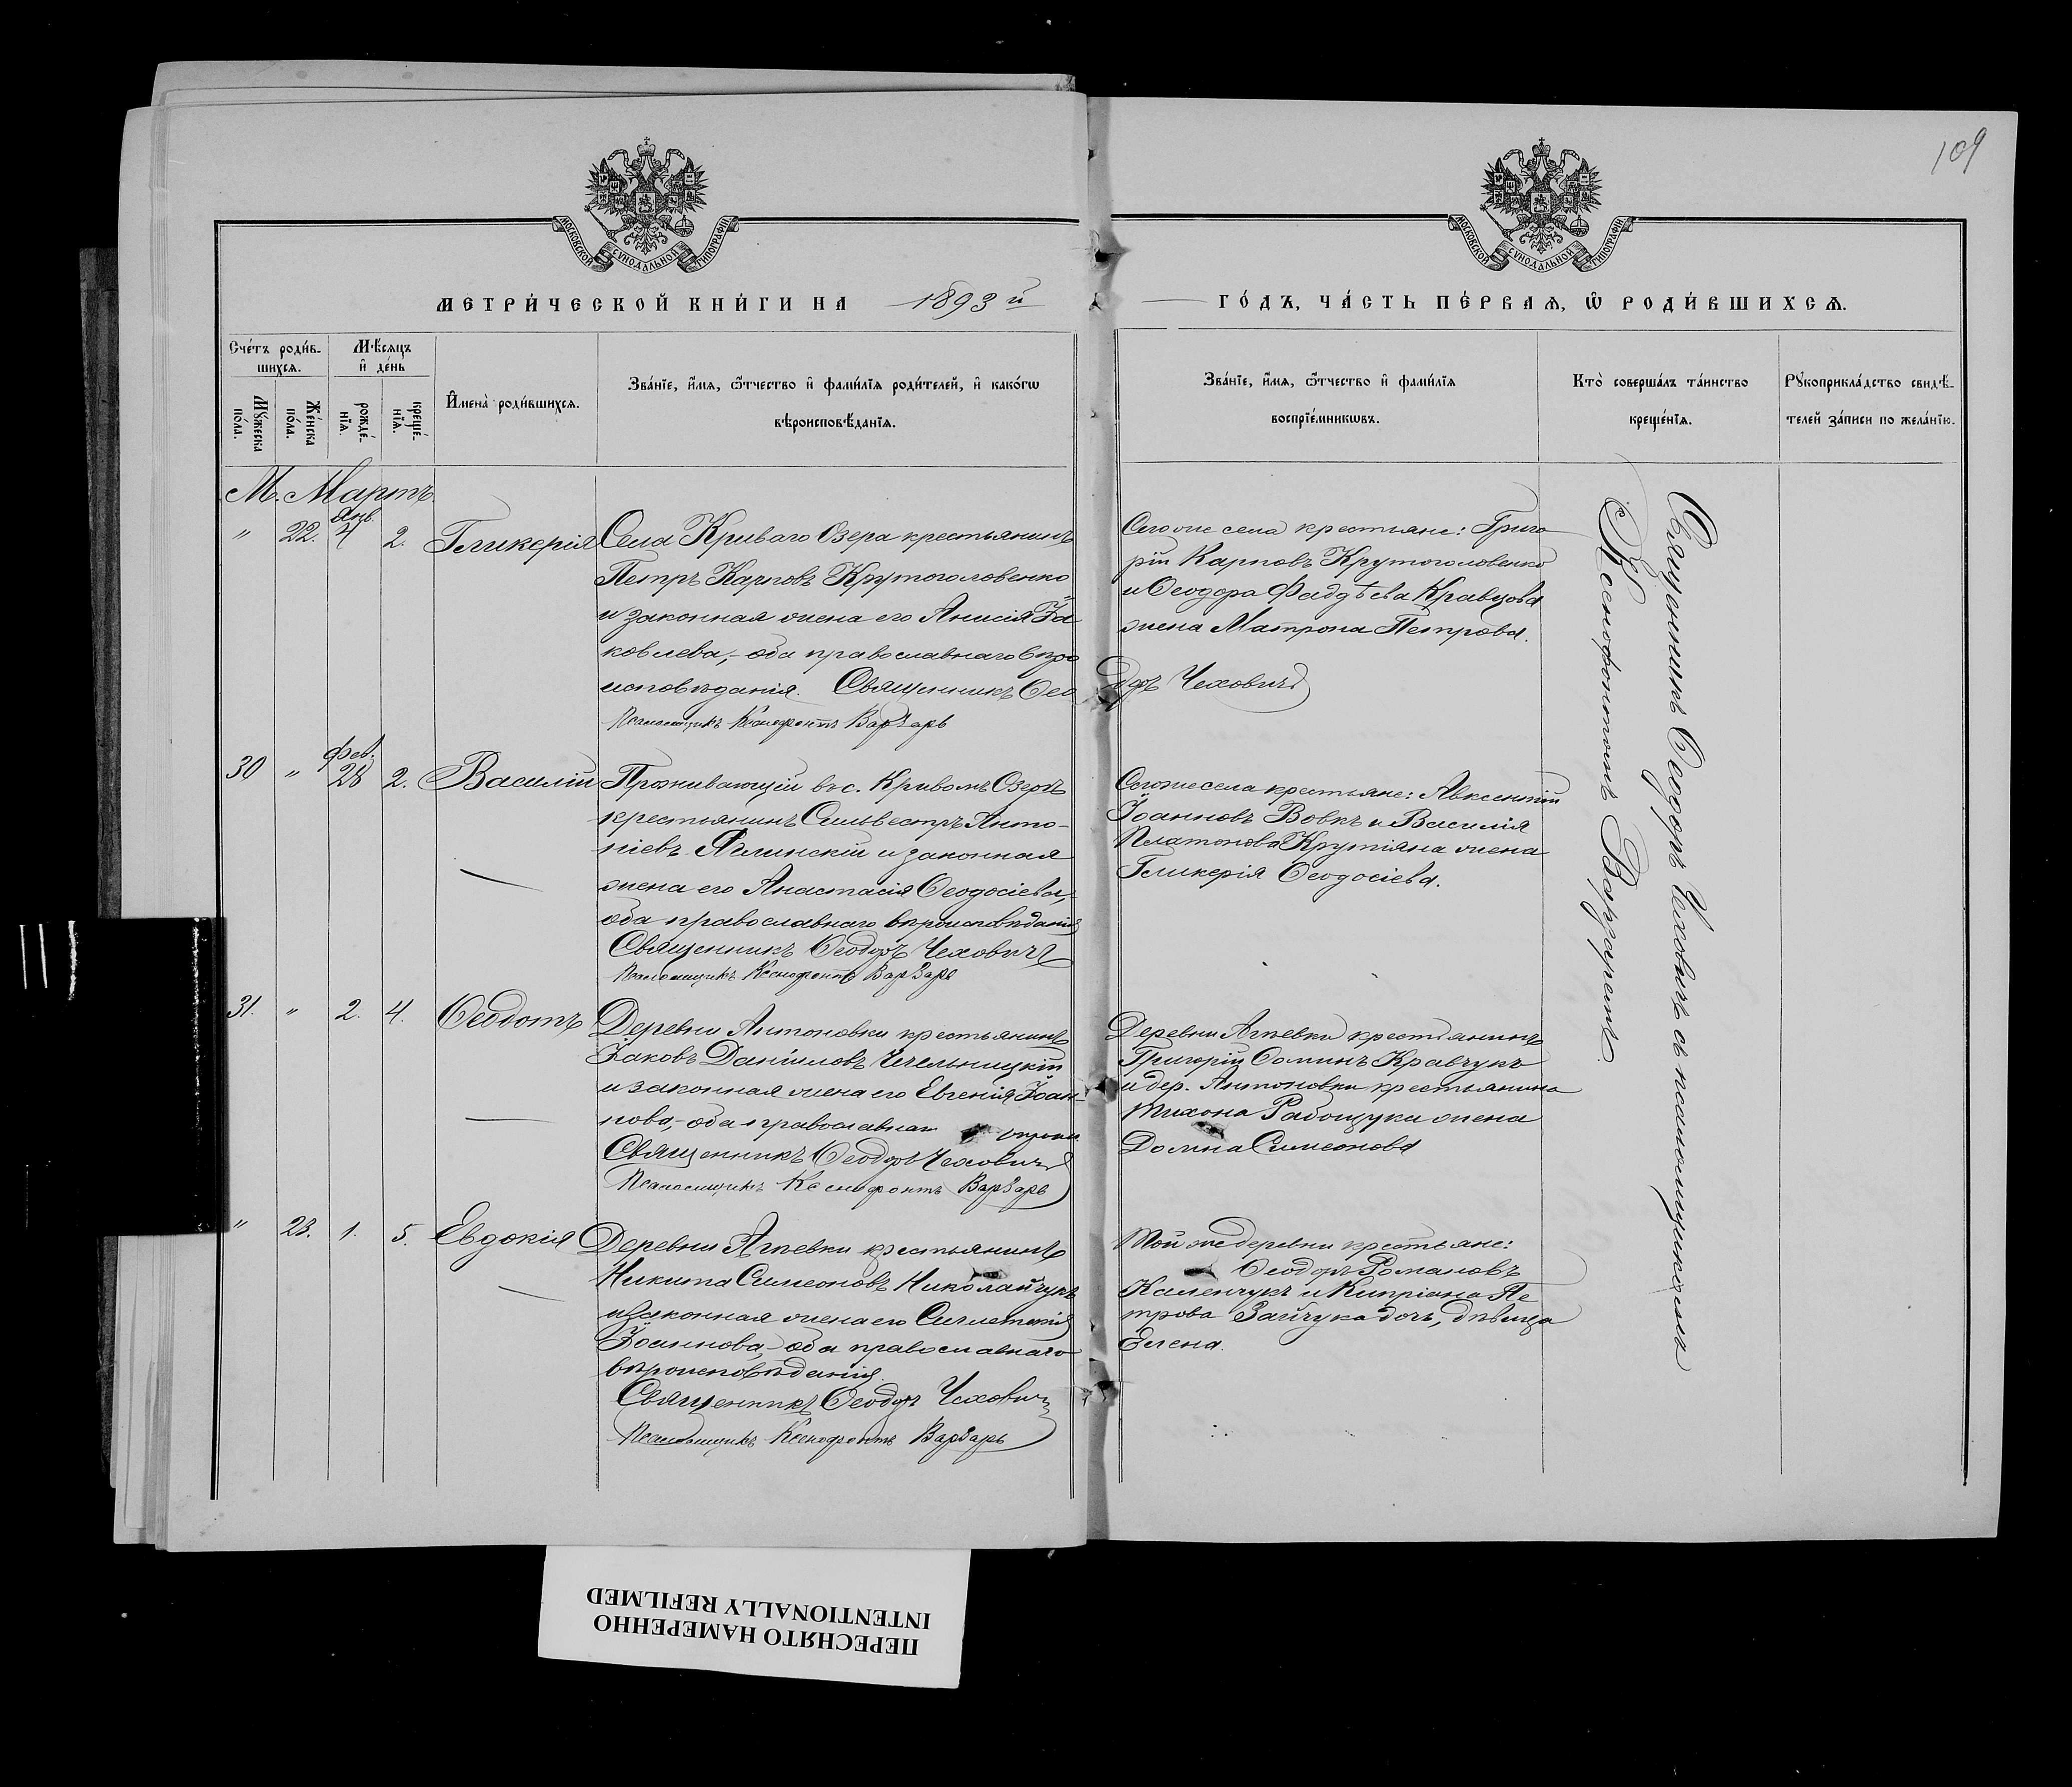 109
МОСКОВСКОЙ СѴНОДАЛЬНОЙ ТИПОГРАФІИ
МОСКОВСКОЙ СѴНОДАЛЬНОЙ ТИПОГРАФІИ
МЕТРИ́ЧЕСКОЙ КНИ́ГИ НА 1893 й
ГО́ДЪ, ЧА́СТЬ ПЕ́РВАѦ, Ѡ҆ РОДИ́ВШИХСѦ.
Сче́тъ роди́в-
шихсѧ.
Мꙋ́жеска по́ла.
Же́нска по́ла.
Мѣ́сѧцъ
и҆ де́нь
рожде́-
нїѧ.
креще́-
нїѧ.
И҆мена̀ роди́вшихсѧ.
Зва́нїе, и҆́мѧ, ѻ҆́тчество и҆ фами́лїѧ роди́телей, и҆ како́гѡ
вѣроисповѣ́данїѧ.
Зва́нїе, и҆́мѧ, ѻ҆́тчество и҆ фами́лїѧ
воспрїе́мникѡвъ.
Кто̀ соверша́лъ та́инство
креще́нїѧ.
Рꙋкоприкла́дство свидѣ́-
телей за́писи по жела́нїю.
М. Мартъ
" 22. Янв. 4 2. Гликерія
Села Криваго Озера крестьянинъ
Петръ Карповъ Крутоголовенко
и законная жена его Анисія Іа
ковлева, - оба православнаго вѣро
исповѣданія. Священникъ Ѳео
доръ Чеховичъ
Псаломщикъ Ксенофонтъ Варзарь
Сего же села крестьяне: Григо
рій Карповъ Крутоголовенко
и Ѳеодора Фаддѣева Кравцова
жена Матрона Петрова.
30 " Фев. 28 2. Василій
Проживающій въ с. Кривомъ Озерѣ
крестьянинъ Сильвестръ Анто-
ніевъ Ялинскій и законная
жена его Анастасія Ѳеодосіева,
оба православнаго вѣроисповѣданія
Священникъ Ѳеодоръ Чеховичъ
Псаломщикъ Ксенофонтъ Варзарь
Сего же села крестьяне: Авксентій
Іоанновъ Вовкъ и Василія
Платонова Крутіяна жена
Гликерія Ѳеодосіева.
31. " 2. 4. Ѳеодотъ
Деревни Антоновки крестьянинъ
Іаковъ Даніиловъ Чечельницкій
и законная жена его Евгенія Іоан-
нова, - оба православнаг
Священникъ Ѳеодоръ Чеховичъ
Псаломщикъ Ксенофонтъ Варзарь
Деревни Агѣевки крестьянинъ
Григорій Ѳоминъ Кравчукъ
и дер. Антоновки крестьянина
Тихона Рабощука жена
Домна Симеонова
" 23. 1. 5. Евдокія
Деревни Агѣевки крестьянинъ
Никита Симеоновъ Николайчукъ
и законная жена его
Іоаннова, - оба православнаго
вѣроисповѣданія.
Священникъ Ѳеодоръ Чеховичъ
Псаломщикъ Ксенофонтъ Варзарь
Той же деревни крестьяне:
Ѳеодоръ Романовъ
Каленчукъ и Кипріана Пе
трова Зайчука дочь, дѣвица
Елена.
Священникъ Ѳеодоръ Чеховичъ съ псаломщикомъ
Ксенофонтомъ Варзаремъ.
ПЕРЕСНЯТО НАМЕРЕННО
INTENTIONALLY REFILMED